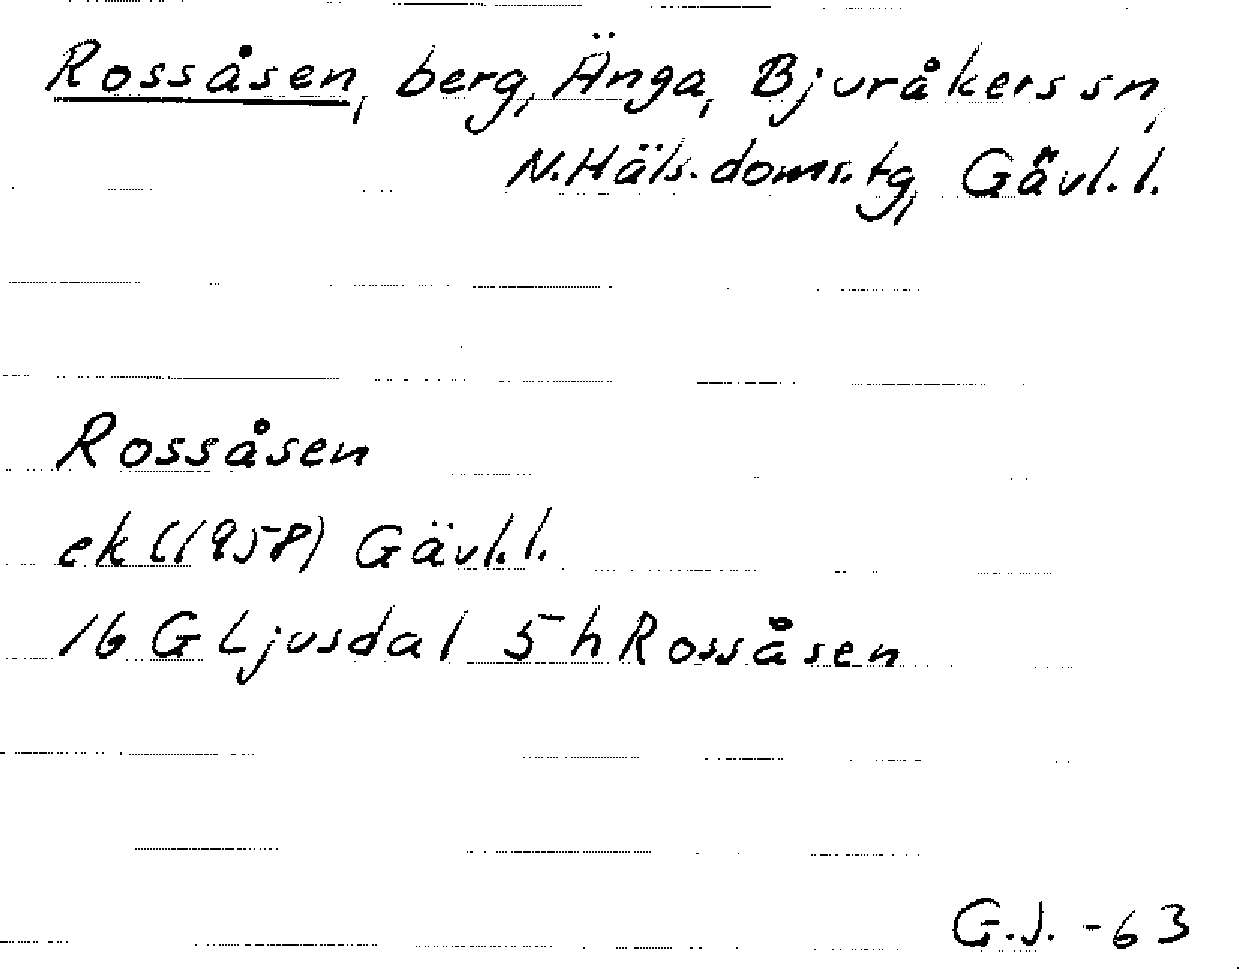 Rossåsen, berg, Änga, Bjuråkers sn,
N.Häls. doms.tg, Gävl. l.
Rossåsen
ek (1958) Gävl. l.
16 G Ljusdal 5 h Rossåsen
G.J. -63